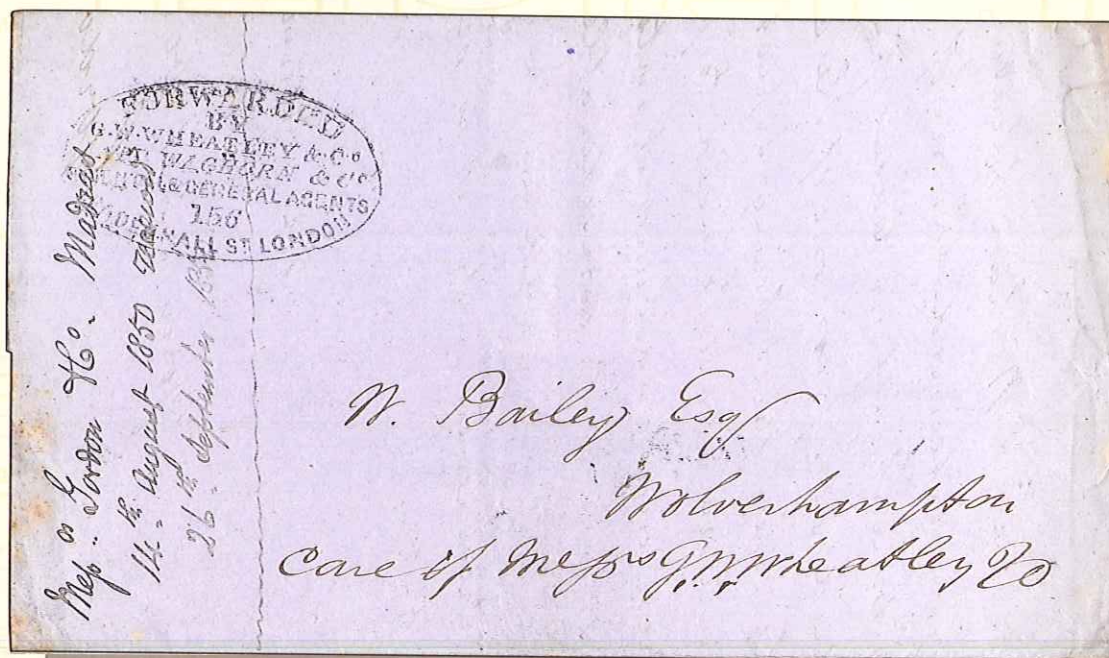 FORWARDED
BY
G.W. WHEATLEY & Co
WAGHORN & Co
& GENERAL AGENTS
156
ST LONDON
Messrs Gordon & Co. Madras
14th August 1850
26th September
W. Bailey Esqr
Wolverhampton
Care of Messrs G.W. Wheatley & Co